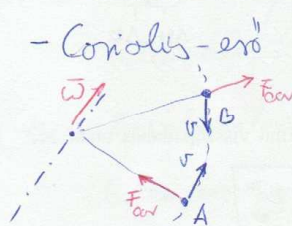 - Coriolis-erő
ω̄
F̄cor
v
B
v
F̄cor
A